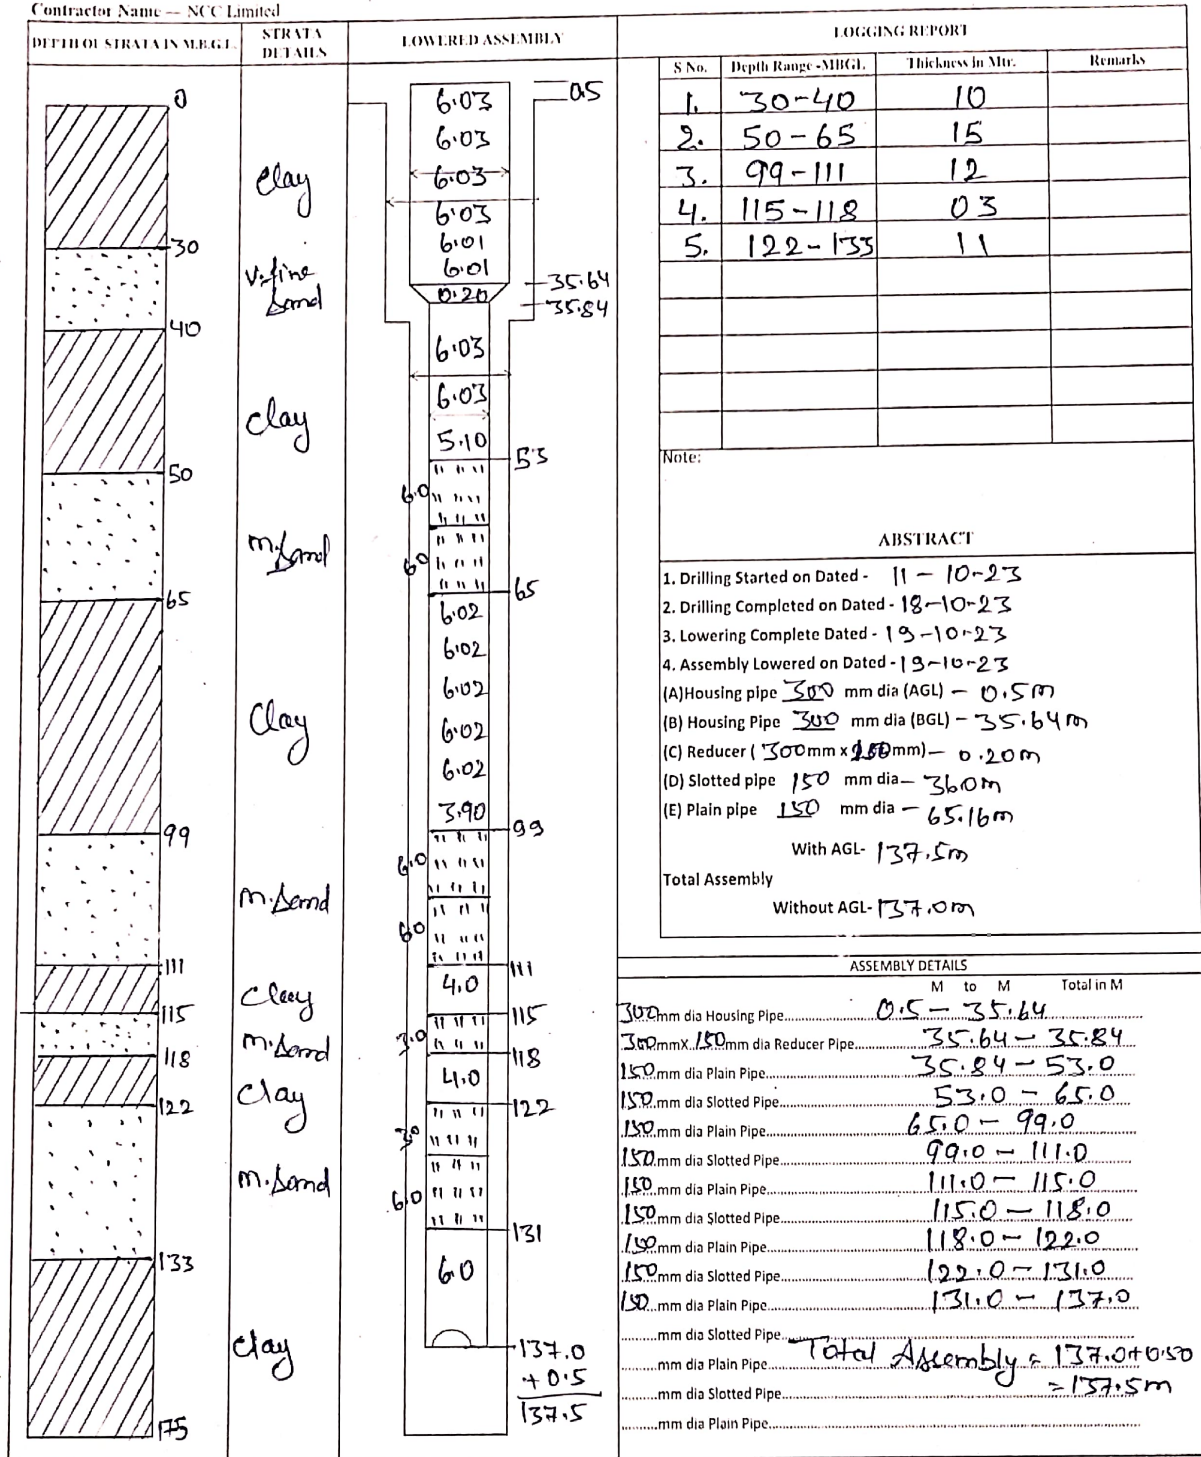 Contractor Name -- NCC Limited
DEPTH OF STRATA IN M.B.G.L.
STRATA DETAILS
LOWERED ASSEMBLY
LOGGING REPORT
0
30
40
50
65
99
111
115
118
122
133
175
Clay
V. fine Sand
Clay
M. Sand
Clay
M. Sand
Clay
M. Sand
Clay
M. Sand
Clay
6.03
6.03
6.03
6.03
6.01
6.01
0.20
6.03
6.03
5.10
6.0
6.0
6.02
6.02
6.02
6.02
6.02
3.90
6.0
6.0
4.0
3.0
4.0
3.0
6.0
6.0
0.5
35.64
35.84
53
65
99
111
115
118
122
131
137.0
+ 0.5
137.5
S No. Depth Range -MBGL Thickness in Mtr. Remarks
1. 30-40 10
2. 50-65 15
3. 99-111 12
4. 115-118 03
5. 122-133 11
Note:
ABSTRACT
1. Drilling Started on Dated - 11-10-23
2. Drilling Completed on Dated - 18-10-23
3. Lowering Complete Dated - 19-10-23
4. Assembly Lowered on Dated - 19-10-23
(A)Housing pipe 300 mm dia (AGL) - 0.5m
(B) Housing Pipe 300 mm dia (BGL) - 35.64m
(C) Reducer ( 300mm x 150mm) - 0.20m
(D) Slotted pipe 150 mm dia - 36.0m
(E) Plain pipe 150 mm dia - 65.16m
With AGL- 137.5m
Total Assembly
Without AGL- 137.0m
ASSEMBLY DETAILS
M to M Total in M
300mm dia Housing Pipe 0.5 - 35.64
300mmX 150mm dia Reducer Pipe 35.64 - 35.84
150mm dia Plain Pipe 35.84 - 53.0
150mm dia Slotted Pipe 53.0 - 65.0
150mm dia Plain Pipe 65.0 - 99.0
150mm dia Slotted Pipe 99.0 - 111.0
150mm dia Plain Pipe 111.0 - 115.0
150mm dia Slotted Pipe 115.0 - 118.0
150mm dia Plain Pipe 118.0 - 122.0
150mm dia Slotted Pipe 122.0 - 131.0
150mm dia Plain Pipe 131.0 - 137.0
mm dia Slotted Pipe
mm dia Plain Pipe Total Assembly = 137.0+0.50
mm dia Slotted Pipe = 137.5m
mm dia Plain Pipe